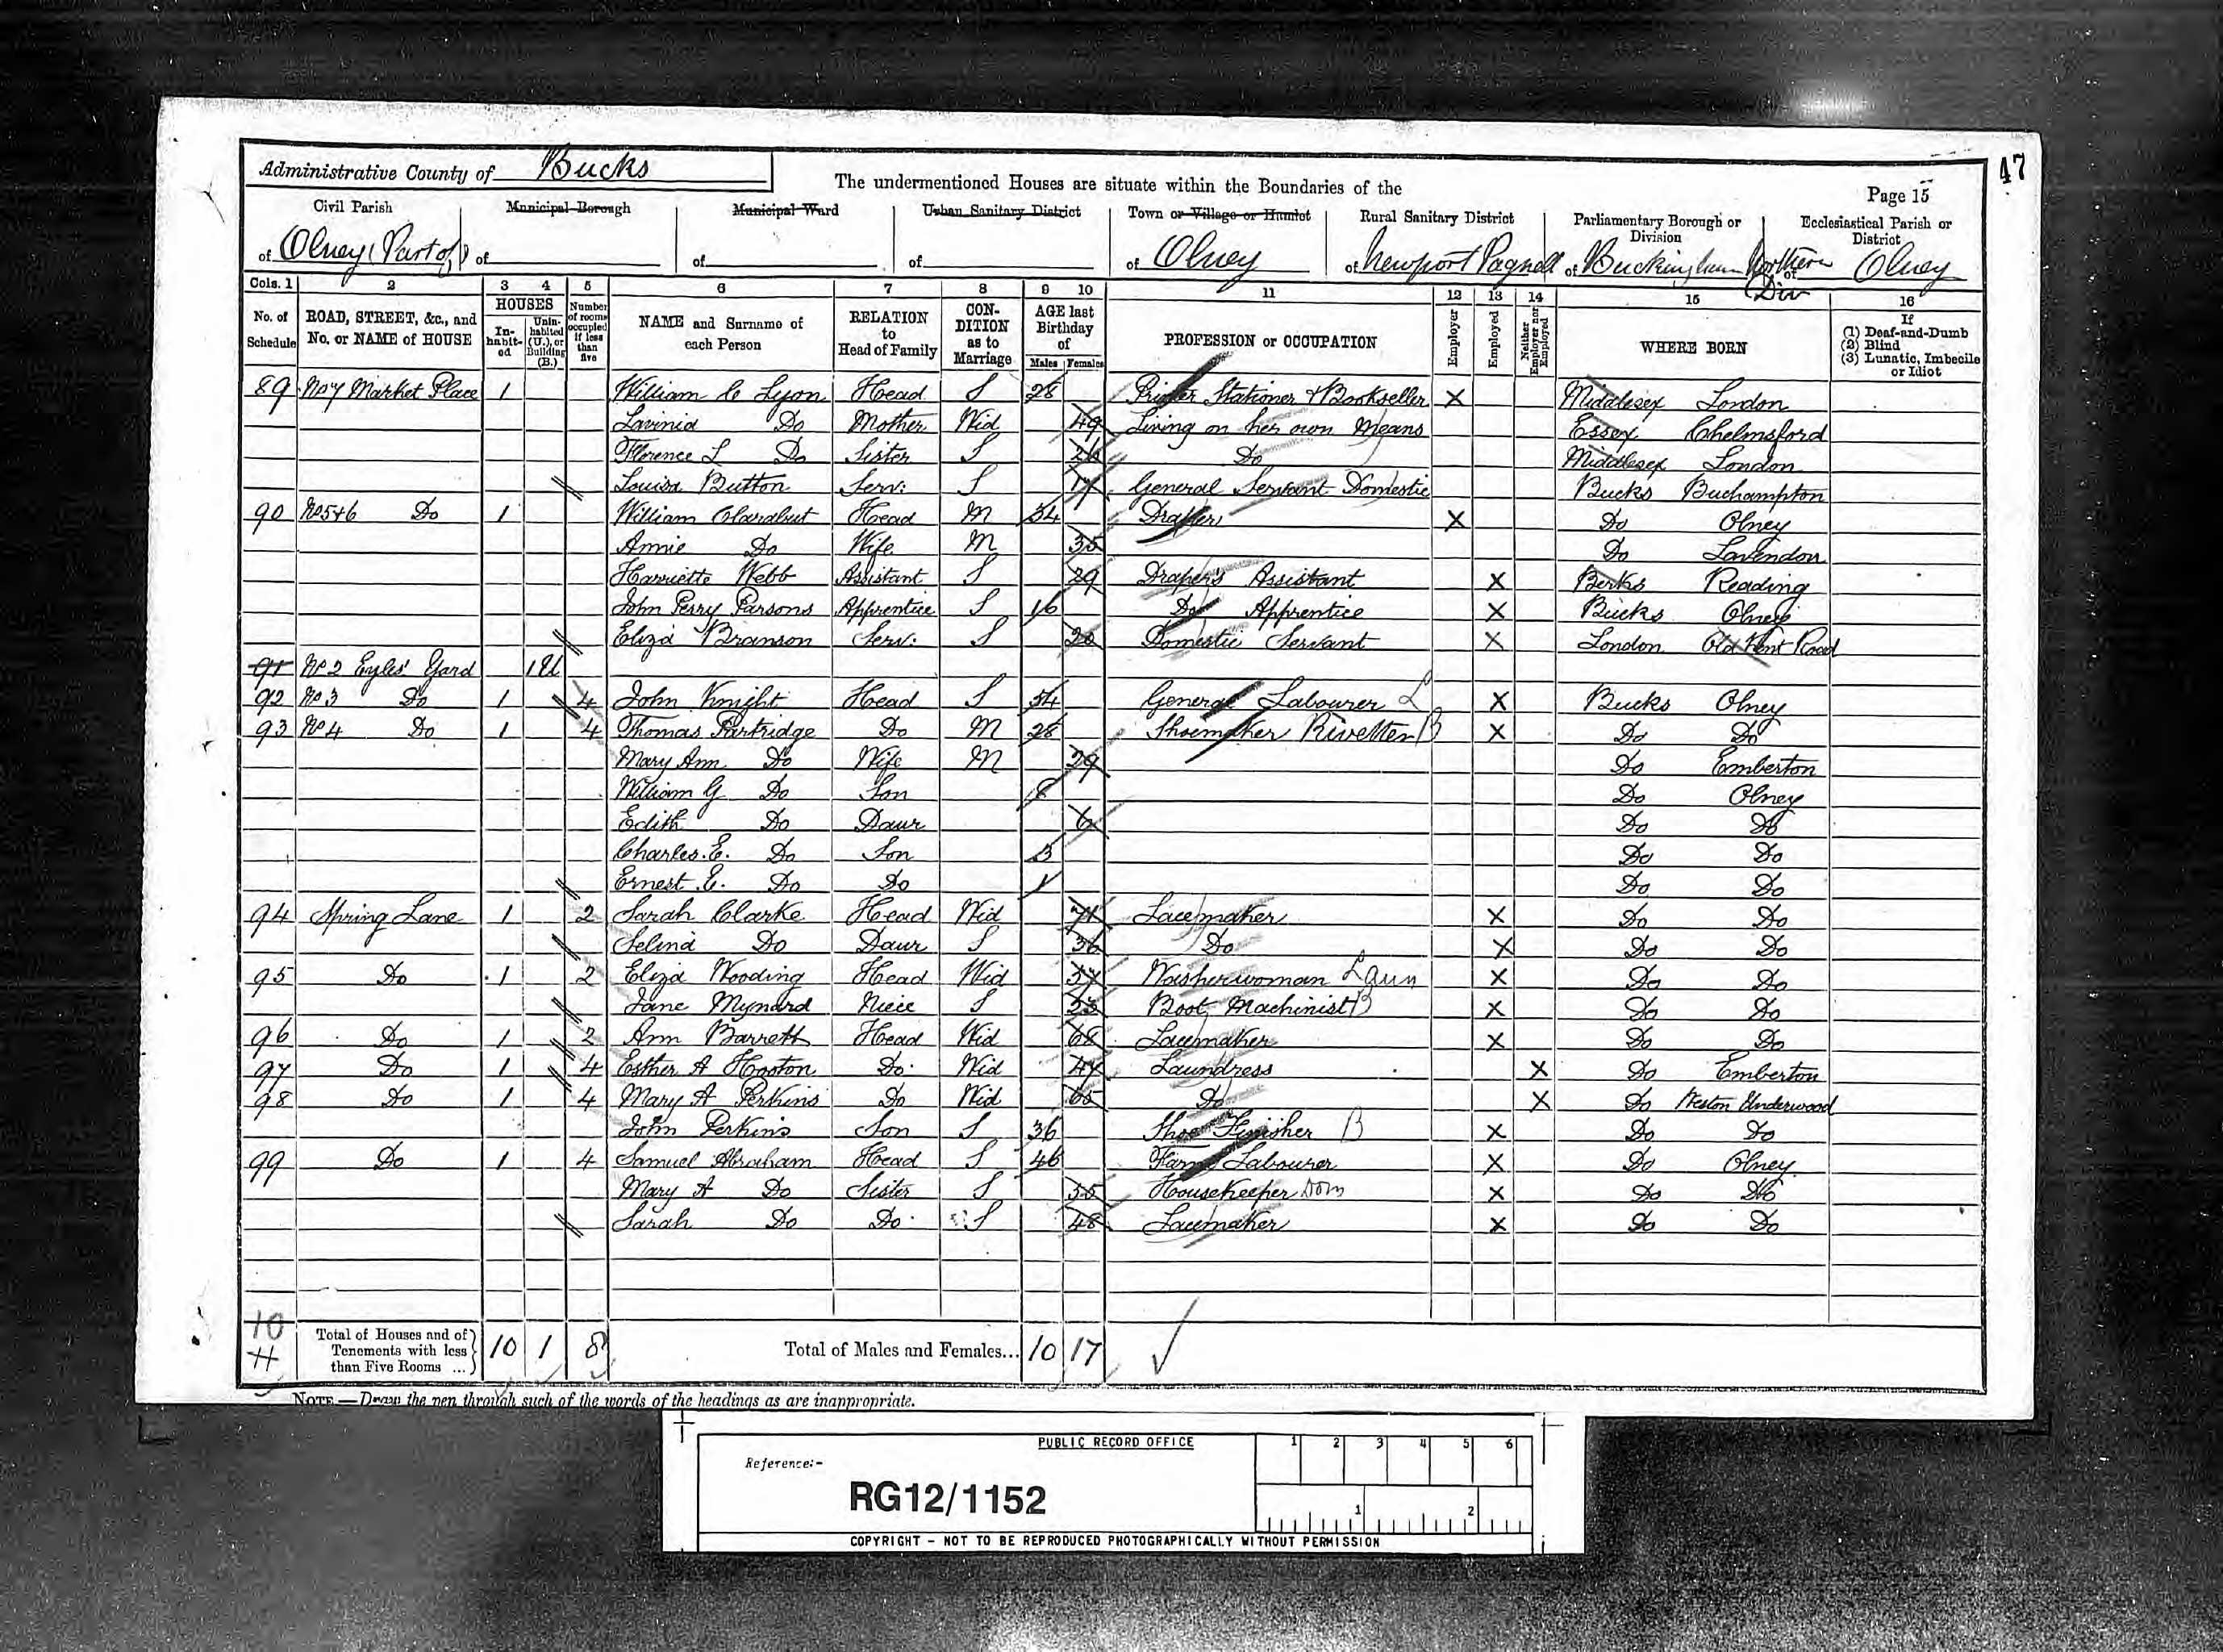 47
Administrative County of Bucks
The undermentioned Houses are situate within the Boundaries of the
Page 15
Civil Parish of Olney (Part of)
Municipal Borough of
Municipal Ward of
Urban Sanitary District of
Town or Village or Hamlet of Olney
Rural Sanitary District of Newport Pagnell
Parliamentary Borough or Division of Buckingham Northern Div
Ecclesiastical Parish or District of Olney
Cols. 1 2 3 4 5 6 7 8 9 10 11 12 13 14 15 16
No. of Schedule
ROAD, STREET, &c., and No. or NAME of HOUSE
HOUSES
In-habit-ed
Unin-habited (U.), or Building (B.)
Number of rooms occupied if less than five
NAME and Surname of each Person
RELATION to Head of Family
CON-DITION as to Marriage
AGE last Birthday of
Males Females
PROFESSION or OCCUPATION
Employer
Employed
Neither Employer nor Employed
WHERE BORN
If
(1) Deaf-and-Dumb
(2) Blind
(3) Lunatic, Imbecile or Idiot
89 No 7 Market Place 1 William C Lyon Head S 28 Printer Stationer & Bookseller X Middlesex London
Lavinia Do Mother Wid 49 Living on her own Means Essex Chelmsford
Florence L Do Sister S 26 Do Middlesex London
Louisa Button Serv: S 17 General Servant Domestic Bucks Buchampton
90 No 5+6 Do 1 William Clarabut Head M 34 Draper X Do Olney
Annie Do Wife M 35 Do Lavendon
Harriette Webb Assistant S 29 Draper's Assistant X Berks Reading
John Perry Parsons Apprentice S 16 Do Apprentice X Bucks Olney
Eliza Branson Serv: S 20 Domestic Servant X London Old Kent Road
91 No 2 Eyles' Yard 1U
92 No 3 Do 1 4 John Knight Head S 54 General Labourer L X Bucks Olney
93 No 4 Do 1 4 Thomas Partridge Do M 28 Shoemaker Rivetter B X Do Do
Mary Ann Do Wife M 29 Do Emberton
William G Do Son 8 Do Olney
Edith Do Daur 6 Do Do
Charles. E. Do Son 3 Do Do
Ernest. E. Do Do 1 Do Do
94 Spring Lane 1 2 Sarah Clarke Head Wid 71 Lacemaker X Do Do
Selina Do Daur S 36 Do X Do Do
95 Do 1 2 Eliza Wooding Head Wid 57 Washerwoman Laun X Do Do
Jane Mynard Niece S 23 Boot Machinist B X Do Do
96 Do 1 2 Ann Barrett Head Wid 68 Lacemaker X Do Do
97 Do 1 4 Esther A Hooton Do Wid 47 Laundress X Do Emberton
98 Do 1 4 Mary A Perkins Do Wid 65 Do X Do Weston Underwood
John Perkins Son S 36 Shoe Finisher B X Do Do
99 Do 1 4 Samuel Abraham Head S 46 Farm Labourer X Do Olney
Mary A Do Sister S 55 Housekeeper Dom X Do Do
Sarah Do Do S 48 Lacemaker X Do Do
10
Total of Houses and of Tenements with less than Five Rooms ... 10 1 8
Total of Males and Females... 10 17
NOTE.—Draw the pen through such of the words of the headings as are inappropriate.
PUBLIC RECORD OFFICE
1 2 3 4 5 6
Reference:-
RG12/1152
1 2
COPYRIGHT - NOT TO BE REPRODUCED PHOTOGRAPHICALLY WITHOUT PERMISSION